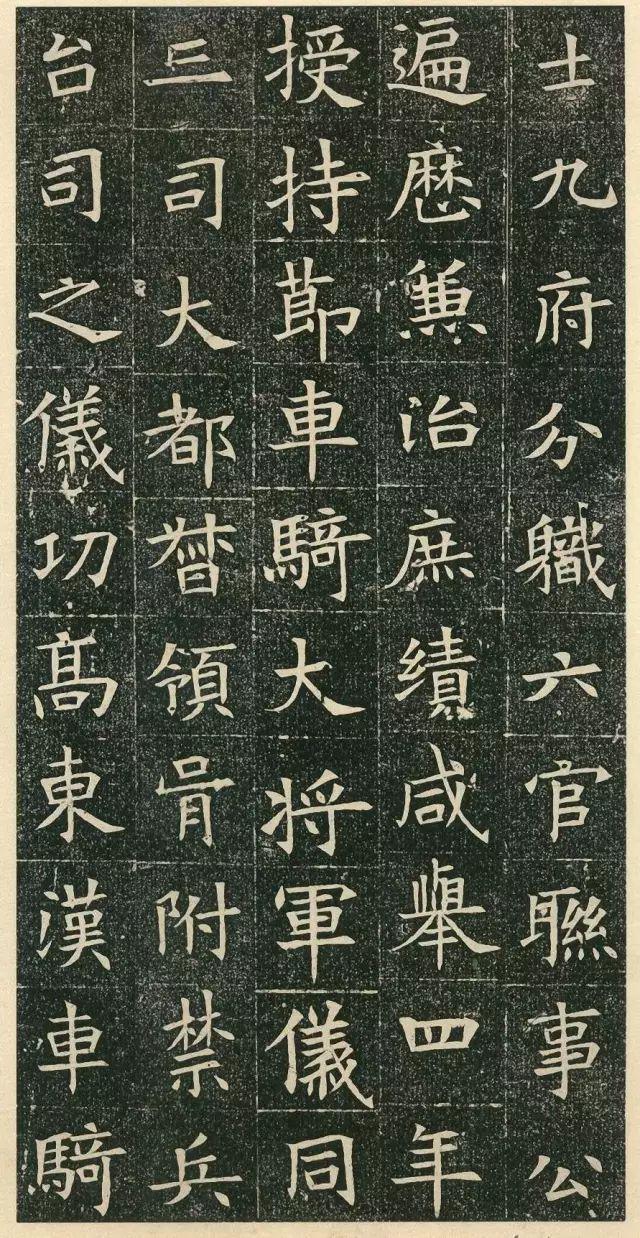 士九府分軄六官聯事公
遍歷兼治庶績咸舉四年
授持莭車騎大将軍儀同
三司大都督領胥附禁兵
台司之儀功髙東漢車騎